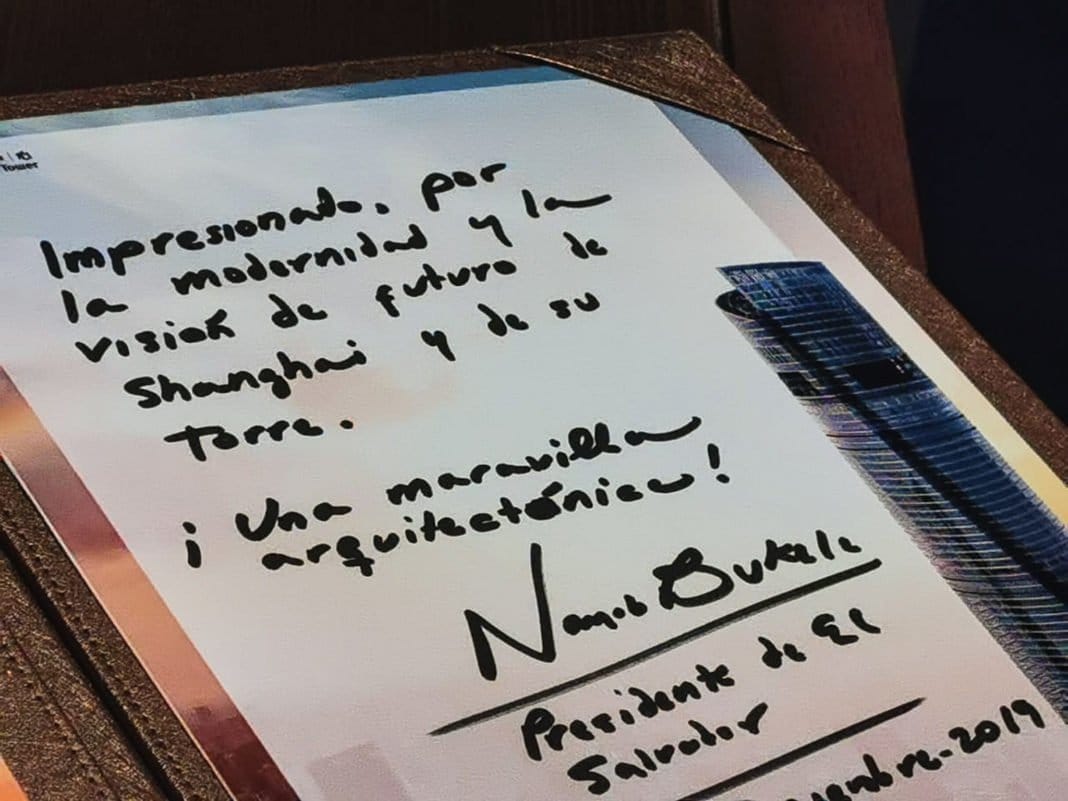 Tower
Impresionado, por
la modernidad y la
visión de futuro de
Shanghai y de su
Torre.
¡Una maravilla
arquitectónica!
Nayib Bukele
Presidente de El
Salvador
-2019